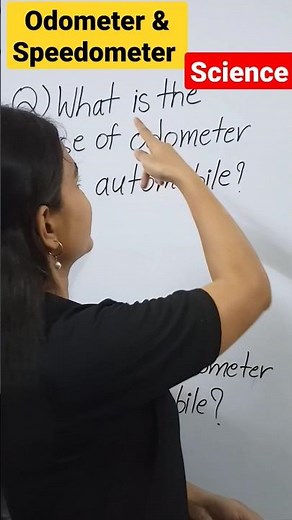 Odometer &
Speedometer
Science
Q) What is the
se of odometer
automobile?
ometer
bile?